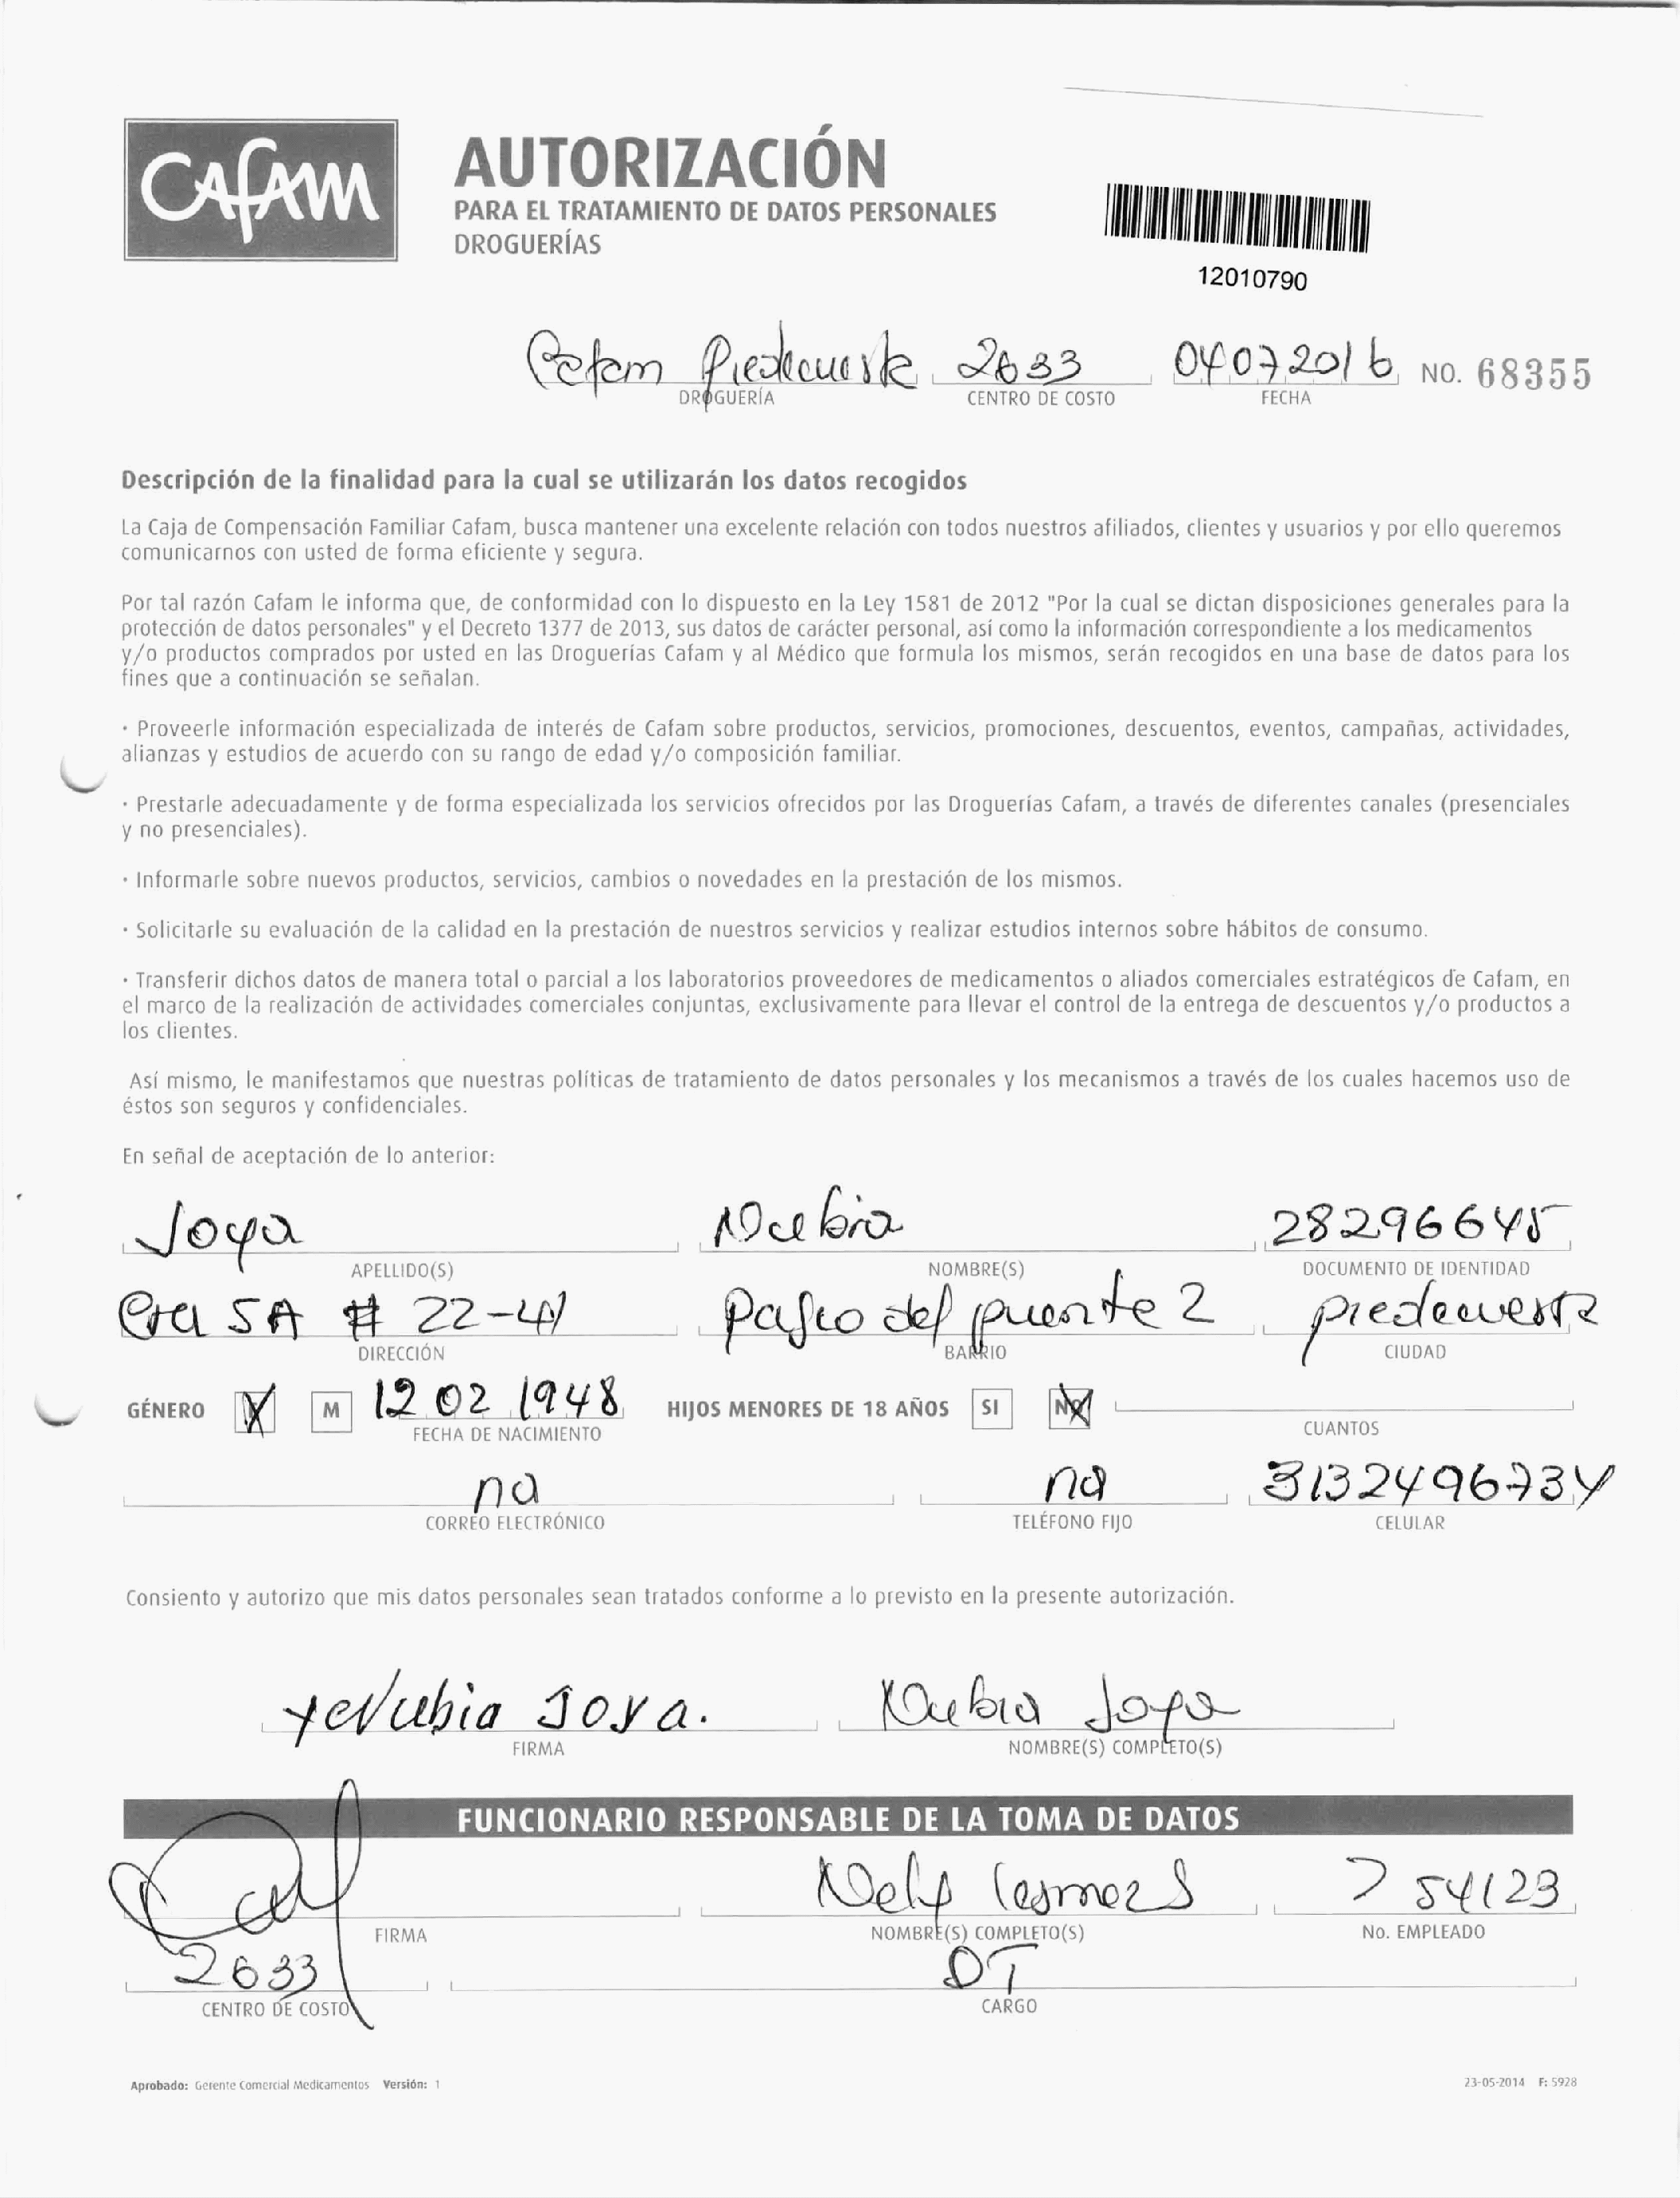 CAFAM
AUTORIZACIÓN
PARA EL TRATAMIENTO DE DATOS PERSONALES
DROGUERÍAS
12010790
Cafam Piedecuesta 2633 04072016 NO. 68355
DROGUERÍA CENTRO DE COSTO FECHA
Descripción de la finalidad para la cual se utilizarán los datos recogidos
La Caja de Compensación Familiar Cafam, busca mantener una excelente relación con todos nuestros afiliados, clientes y usuarios y por ello queremos
comunicarnos con usted de forma eficiente y segura.
Por tal razón Cafam le informa que, de conformidad con lo dispuesto en la Ley 1581 de 2012 "Por la cual se dictan disposiciones generales para la
protección de datos personales" y el Decreto 1377 de 2013, sus datos de carácter personal, así como la información correspondiente a los medicamentos
y/o productos comprados por usted en las Droguerías Cafam y al Médico que formula los mismos, serán recogidos en una base de datos para los
fines que a continuación se señalan.
· Proveerle información especializada de interés de Cafam sobre productos, servicios, promociones, descuentos, eventos, campañas, actividades,
alianzas y estudios de acuerdo con su rango de edad y/o composición familiar.
· Prestarle adecuadamente y de forma especializada los servicios ofrecidos por las Droguerías Cafam, a través de diferentes canales (presenciales
y no presenciales).
· Informarle sobre nuevos productos, servicios, cambios o novedades en la prestación de los mismos.
· Solicitarle su evaluación de la calidad en la prestación de nuestros servicios y realizar estudios internos sobre hábitos de consumo.
· Transferir dichos datos de manera total o parcial a los laboratorios proveedores de medicamentos o aliados comerciales estratégicos de Cafam, en
el marco de la realización de actividades comerciales conjuntas, exclusivamente para llevar el control de la entrega de descuentos y/o productos a
los clientes.
Así mismo, le manifestamos que nuestras políticas de tratamiento de datos personales y los mecanismos a través de los cuales hacemos uso de
éstos son seguros y confidenciales.
En señal de aceptación de lo anterior:
Joya Nubia 28296645
APELLIDO(S) NOMBRE(S) DOCUMENTO DE IDENTIDAD
Cra 5A # 22-41 Paseo del puente 2 piedecuesta
DIRECCIÓN BARRIO CIUDAD
GÉNERO X M 12 02 1948 HIJOS MENORES DE 18 AÑOS SI NO
FECHA DE NACIMIENTO CUANTOS
na na 3132496734
CORREO ELECTRÓNICO TELÉFONO FIJO CELULAR
Consiento y autorizo que mis datos personales sean tratados conforme a lo previsto en la presente autorización.
Nubia Joya. Nubia Joya
FIRMA NOMBRE(S) COMPLETO(S)
FUNCIONARIO RESPONSABLE DE LA TOMA DE DATOS
Nely Lesmes 754123
FIRMA NOMBRE(S) COMPLETO(S) No. EMPLEADO
2633 DT
CENTRO DE COSTO CARGO
Aprobado: Gerente Comercial Medicamentos Versión: 1 23-05-2014 F: 5928